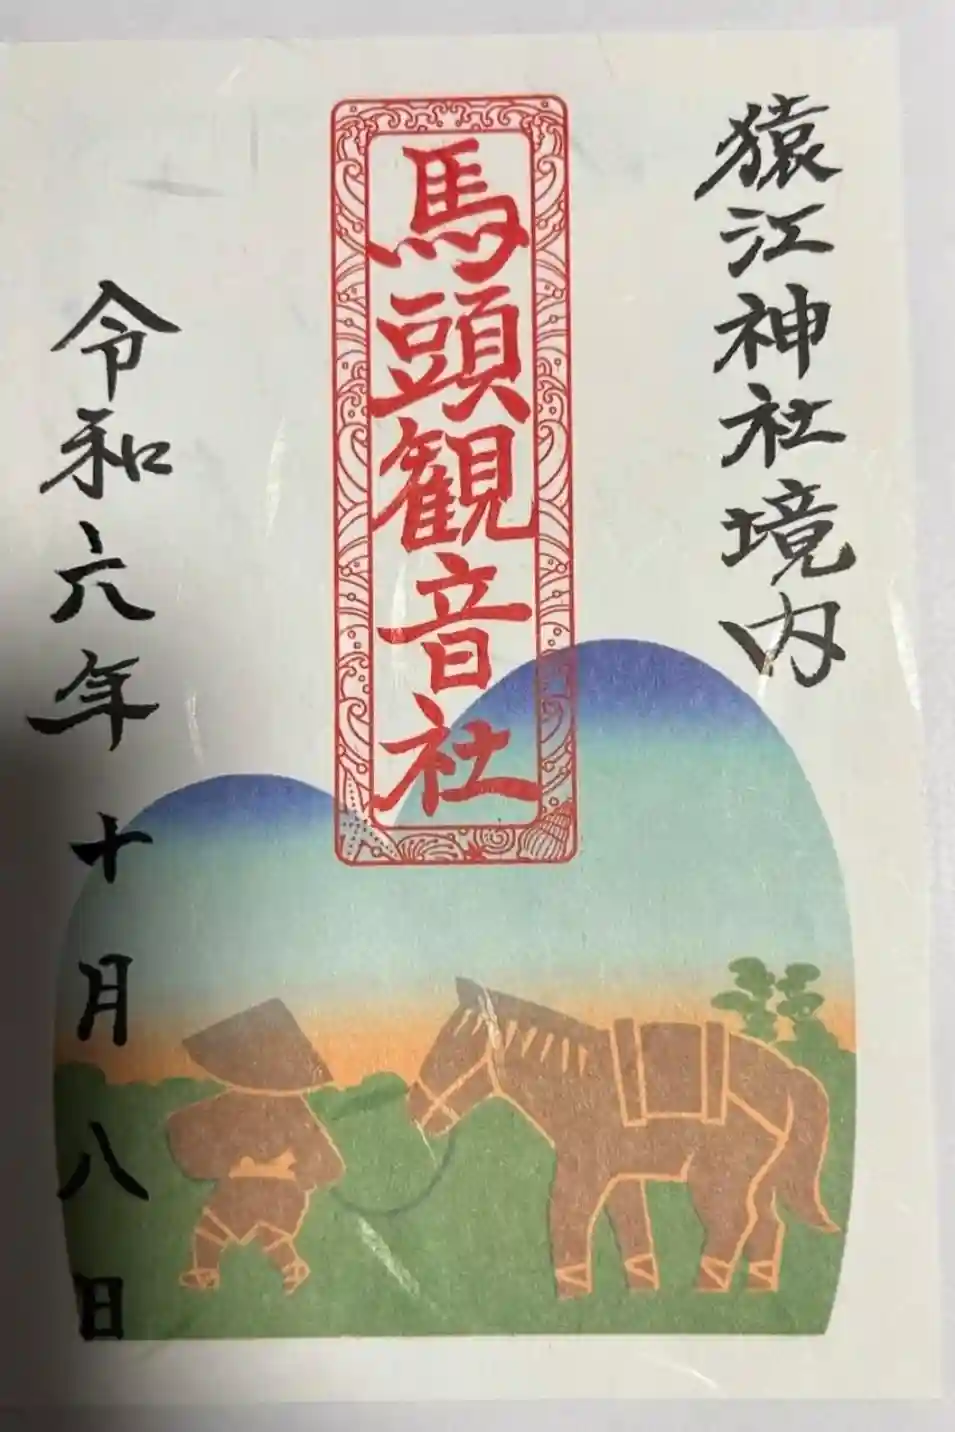 猿江神社境内
馬頭観音社
令和六年十月八日